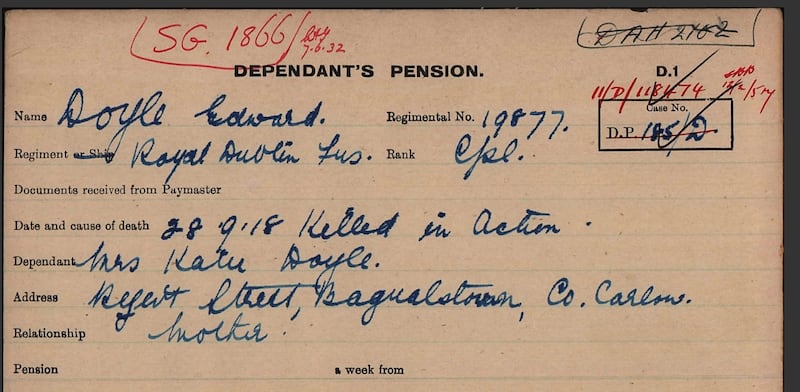 SG. 1866
7.6.32
DAH 2102
DEPENDANT'S PENSION.
D.1
11/D/118474
Name Doyle Edward.
Regimental No. 19877.
Case No.
D.P. 185/D
Regiment or Ship Royal Dublin Fus.
Rank Cpl.
Documents received from Paymaster
Date and cause of death 28 9.18 Killed in Action.
Dependant Mrs Katie Doyle.
Address Regent Street, Bagnalstown, Co. Carlow.
Relationship Mother.
Pension a week from